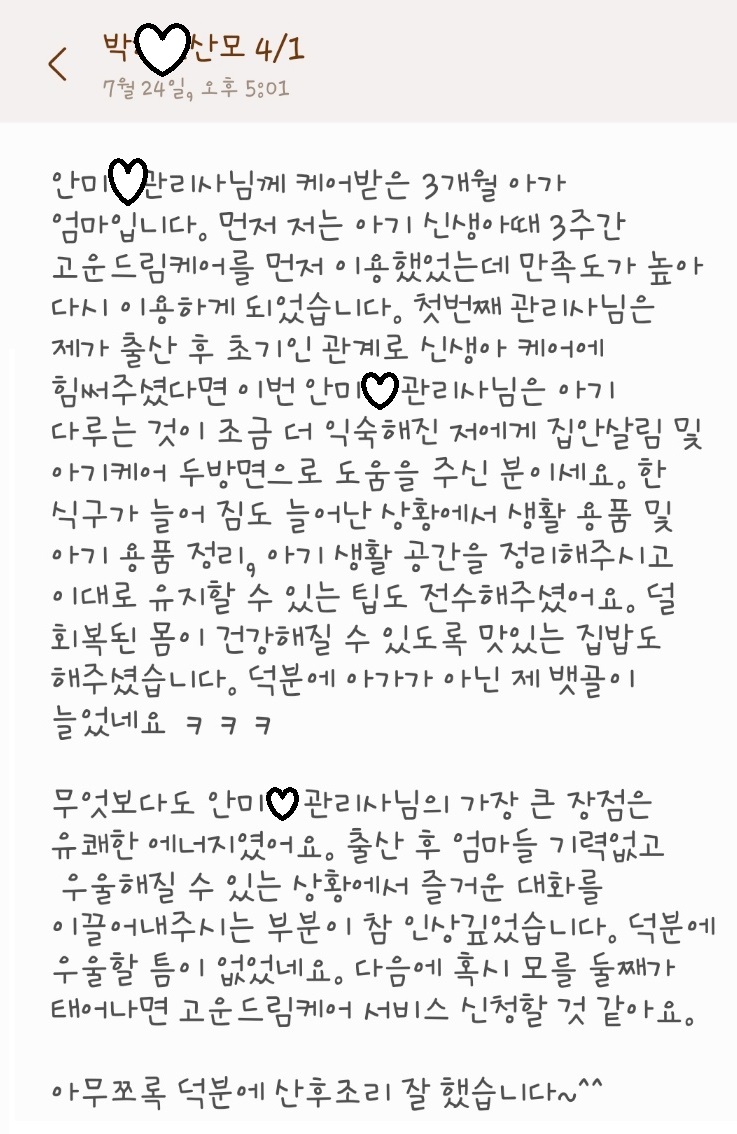 박♡산모 4/1
7월 24일, 오후 5:01
안미♡관리사님께 케어받은 3개월 아가
엄마입니다. 먼저 저는 아기 신생아때 3주간
고운드림케어를 먼저 이용했었는데 만족도가 높아
다시 이용하게 되었습니다. 첫번째 관리사님은
제가 출산 후 초기인 관계로 신생아 케어에
힘써주셨다면 이번 안미♡관리사님은 아기
다루는 것이 조금 더 익숙해진 저에게 집안살림 및
아기케어 두방면으로 도움을 주신 분이세요. 한
식구가 늘어 짐도 늘어난 상황에서 생활 용품 및
아기 용품 정리, 아기 생활 공간을 정리해주시고
이대로 유지할 수 있는 팁도 전수해주셨어요. 덜
회복된 몸이 건강해질 수 있도록 맛있는 집밥도
해주셨습니다. 덕분에 아가가 아닌 제 뱃골이
늘었네요 ㅋㅋㅋ
무엇보다도 안미♡관리사님의 가장 큰 장점은
유쾌한 에너지였어요. 출산 후 엄마들 기력없고
우울해질 수 있는 상황에서 즐거운 대화를
이끌어내주시는 부분이 참 인상깊었습니다. 덕분에
우울할 틈이 없었네요. 다음에 혹시 모를 둘째가
태어나면 고운드림케어 서비스 신청할 것 같아요.
아무쪼록 덕분에 산후조리 잘 했습니다~^^